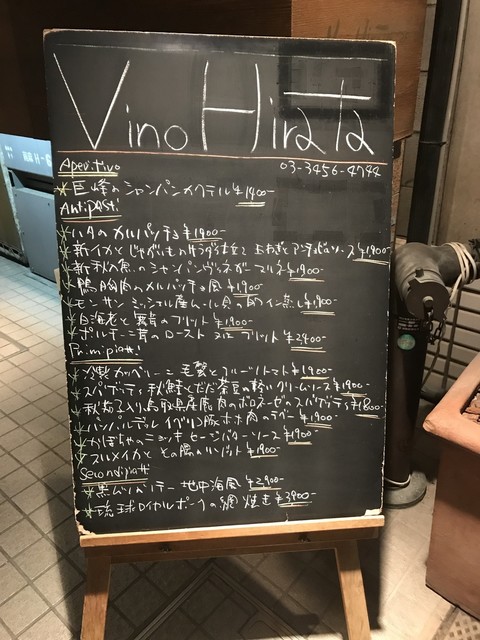 Vino Hirata
03-3456-4744
Aperitivo
巨峰のシャンパンカクテル ¥1400-
Antipasti
ハタのカルパッチョ ¥1900-
新イカとじゃがいものサラダ仕立て ¥1900-
新秋刀魚のシャンパンヴィネガーマリネ ¥1900-
鴨胸肉のカルパッチョ風 ¥1900-
モンサンミッシェル産ムール貝の白ワイン蒸し ¥1900-
白海老と無花のフリット ¥1900-
ポルチーニ茸のロースト 又は フリット ¥2400-
Primipiatti
冷製カッペリーニ 毛蟹とフルーツトマト ¥1900-
スパゲティ 秋鮭とだだ茶豆の軽いクリームソース ¥1900-
秋茄子入り鳥取県産鹿肉のボロネーゼのスパゲティ ¥1800-
パッパルデッレ イベリコ豚ホホ肉のラグー ¥1900-
かぼちゃのニョッキ セージバターソース ¥1900-
スルメイカとその腸のリゾット ¥1900-
Secondipiatti
黒ムツのソテー 地中海風 ¥2900-
琉球ロイヤルポークの網焼き ¥3900-